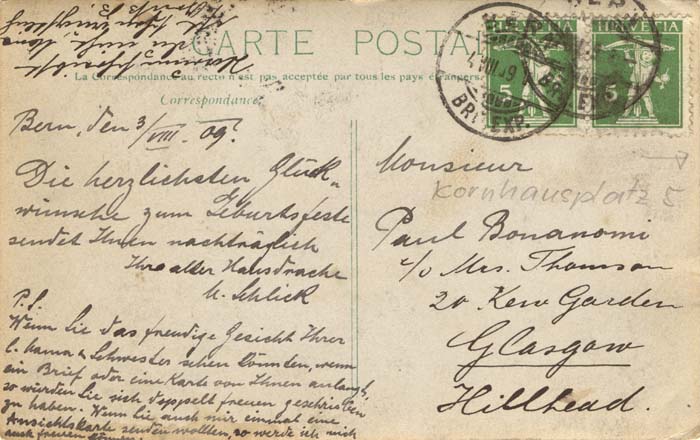 CARTE POSTALE
La Correspondance au recto n'est pas acceptée par tous les pays étrangers
Correspondance
Bern, den 3/VIII. 09.
Die herzlichsten Glück-
wünsche zum Geburtsfeste
sendet Ihnen nachträglich
Ihr alter Hausdrache
M. Schlick
P.S.
Wenn Sie das freudige Gesicht Ihrer
l. Mama & Schwester sehen könnten, wenn
ein Brief oder eine Karte von Ihnen anlangt,
so würden Sie sich doppelt freuen geschrieben
zu haben. Wenn Sie auch mir einmal eine
Ansichtskarte senden wollten, so werde ich mich
auch freuen können
HELVETIA
5
HELVETIA
5
BERN
BRF. EXP.
Monsieur
Kornhausplatz 5
Paul Bonanomi
c/o Mrs. Thomson
20 Kew Garden
Glasgow
Hillhead.